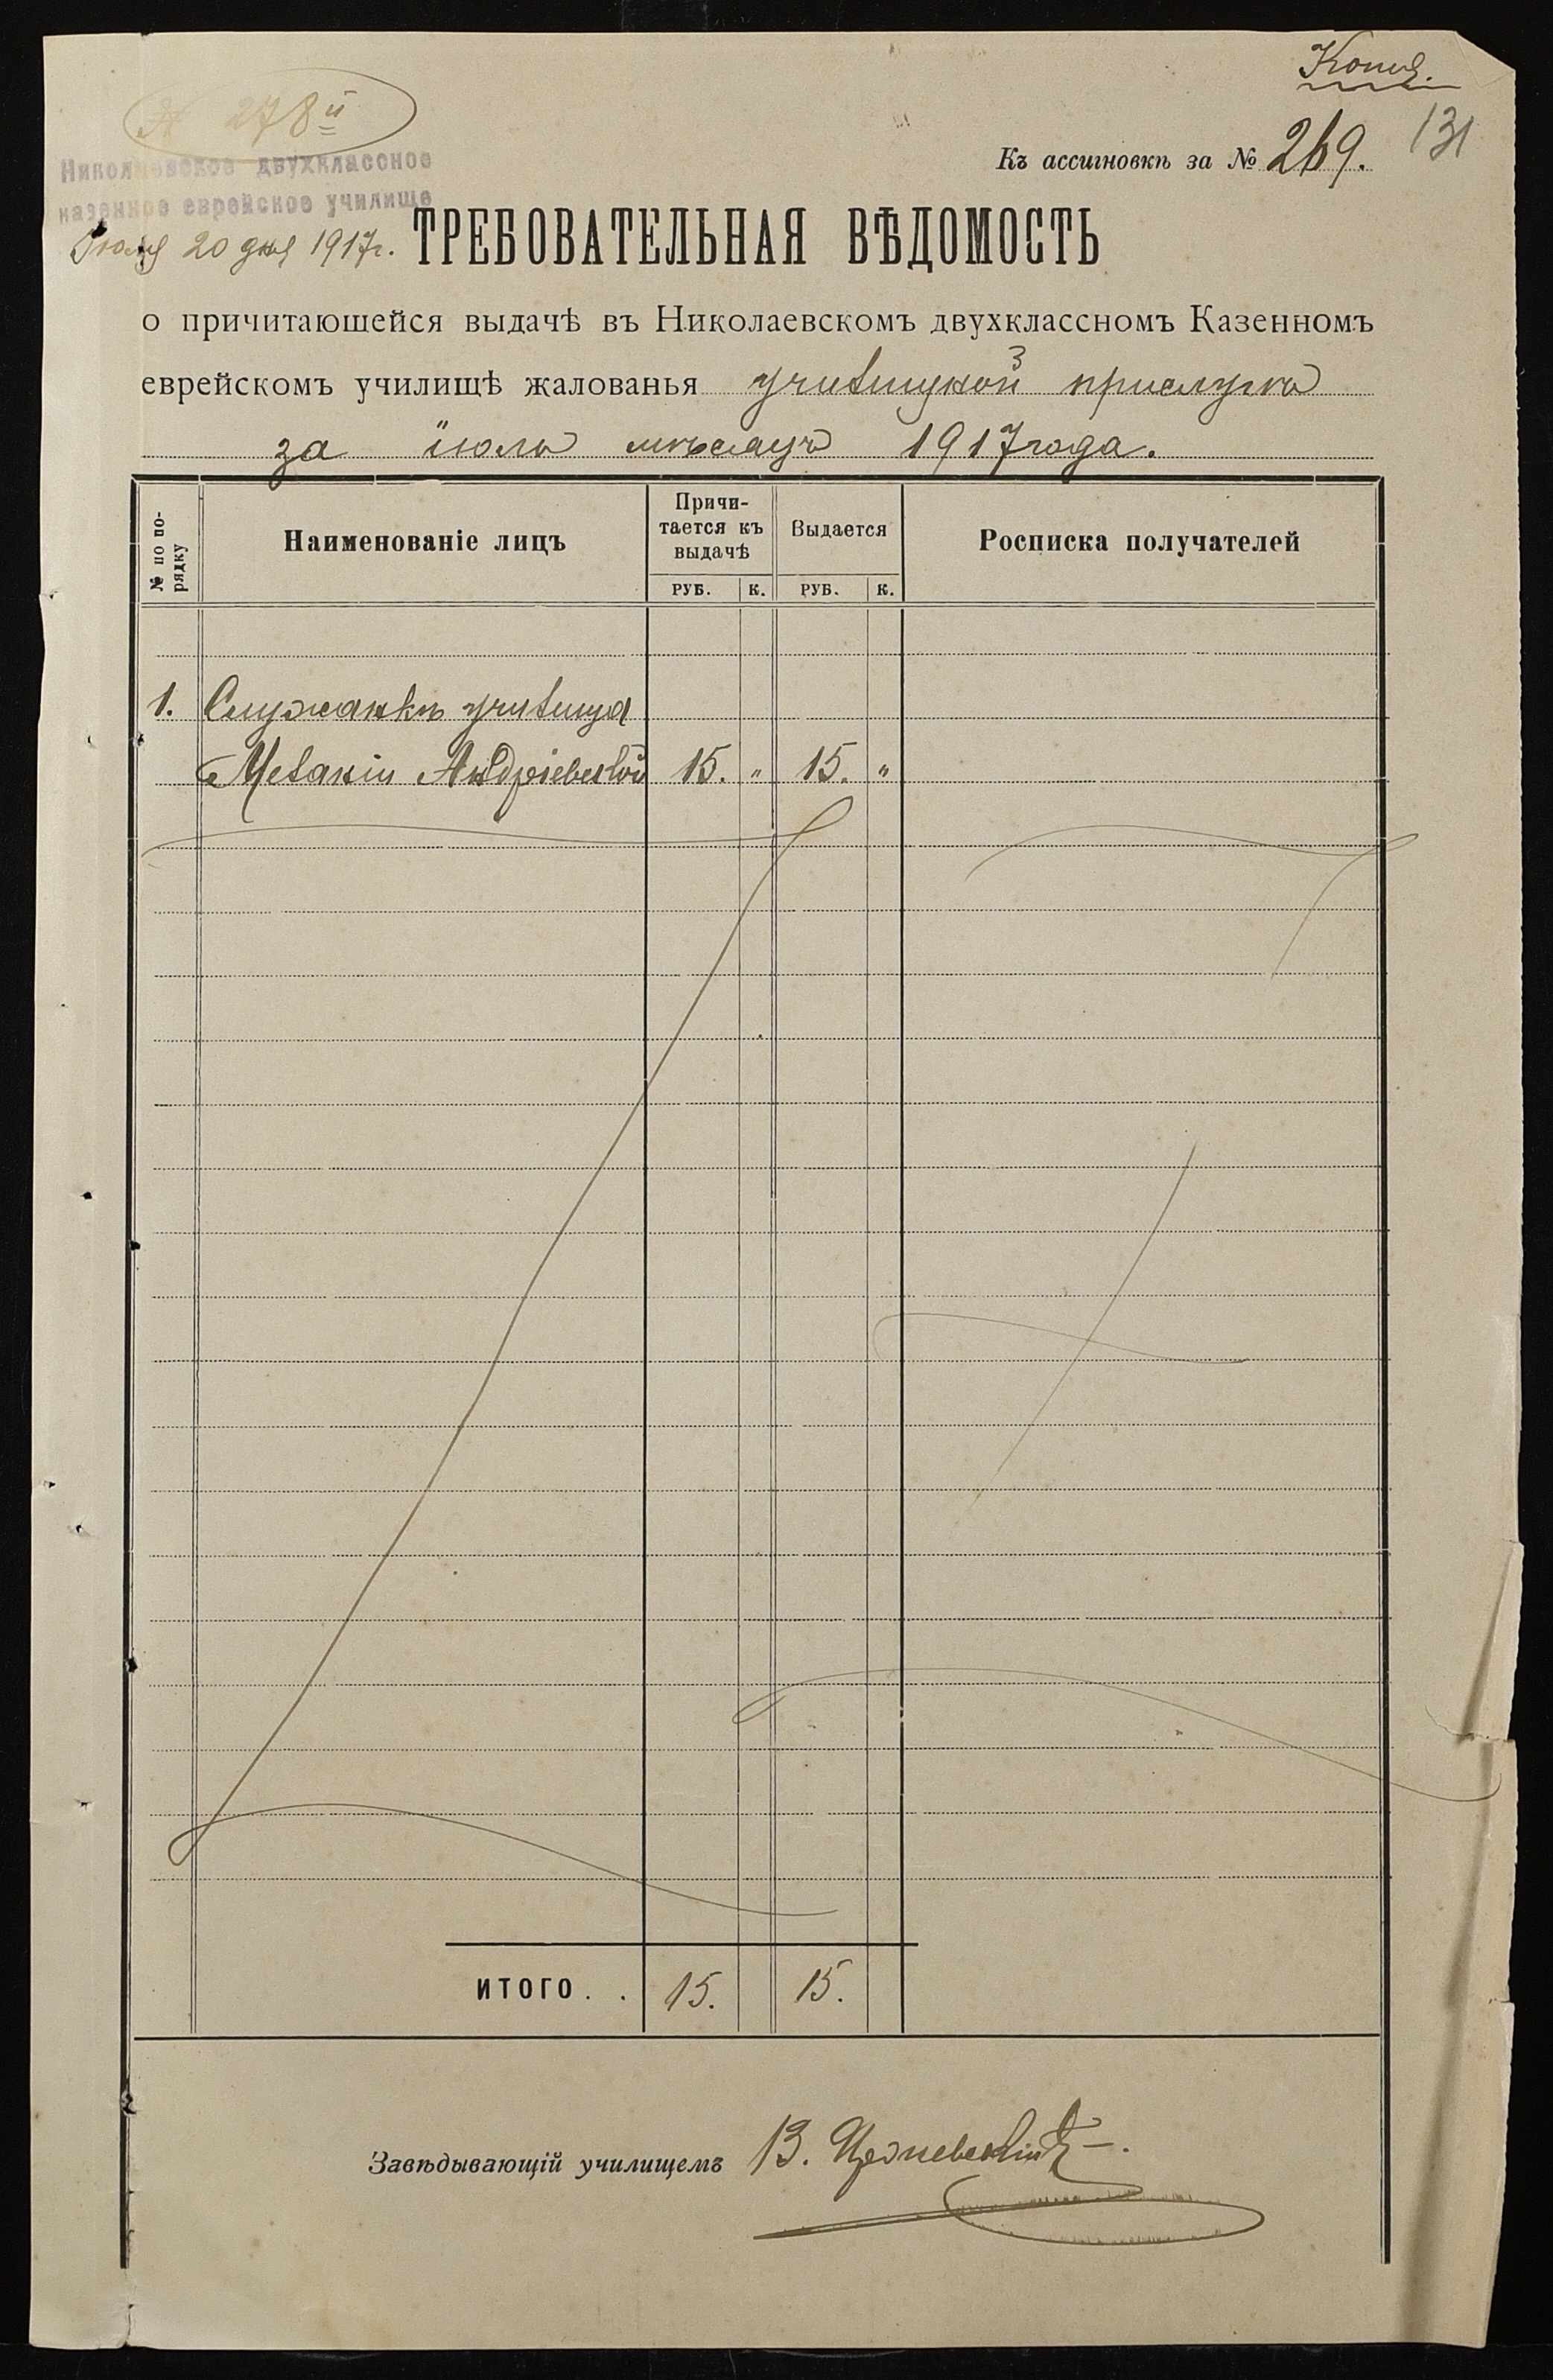 Копія.
№ 278й
131
Къ ассигновкѣ за № 269.
Николаевское двухклассное
казенное еврейское училище
Іюля 20 дня 1917г.
ТРЕБОВАТЕЛЬНАЯ ВѢДОМОСТЬ
о причитающейся выдачѣ въ Николаевскомъ двухклассномъ Казенномъ
еврейскомъ училищѣ жалованья училищной прислугѣ
за іюль мѣсяцъ 1917 года.
№ по по-
рядку
Наименованіе лицъ
Причи-
тается къ
выдачѣ
Выдается
Росписка получателей
РУБ. К. РУБ. К.
1. Служанкѣ училища
Меланіи Андріевской 15. " 15. "
ИТОГО . . 15. 15.
Завѣдывающій училищемъ В.